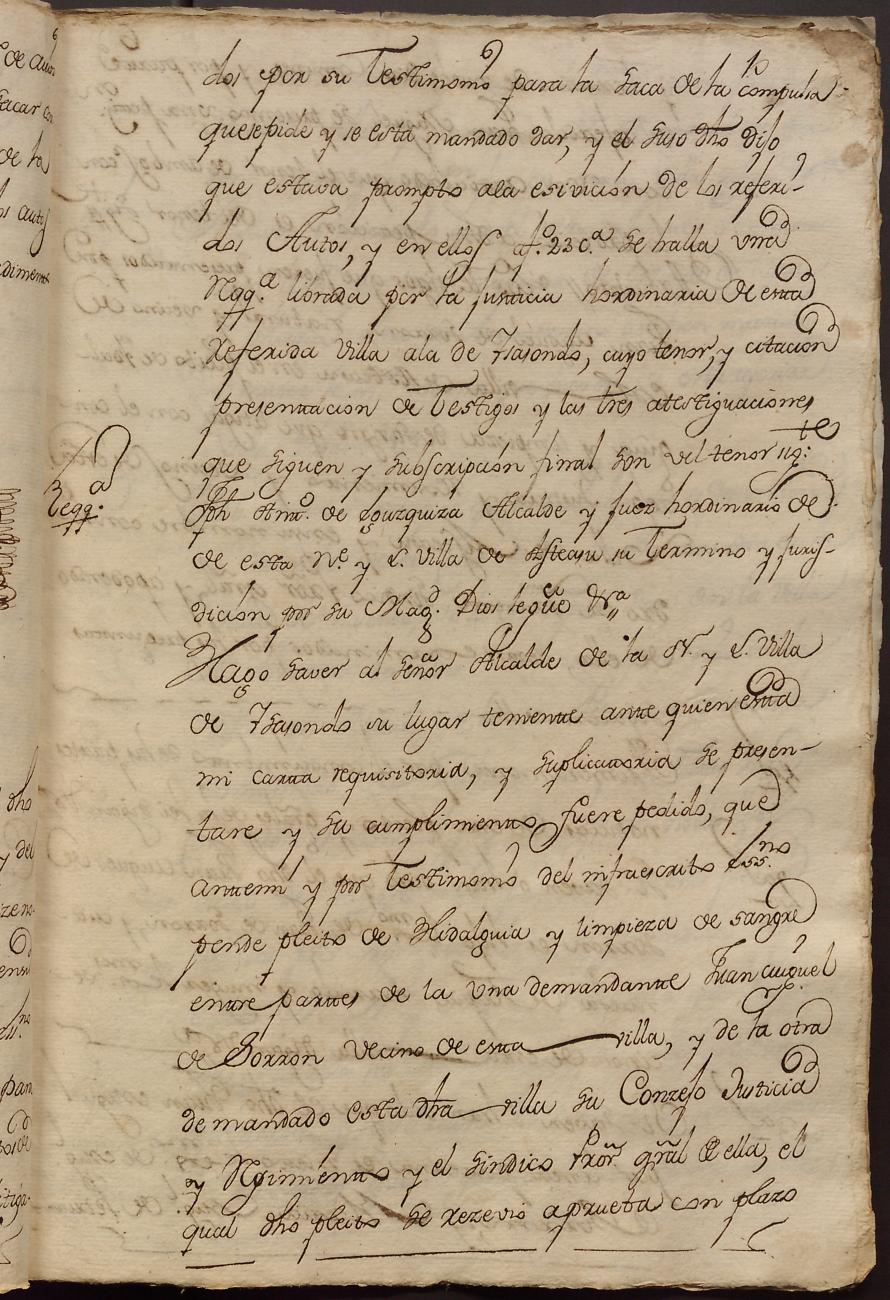 dos por su Testimonio para la saca de la compulsa
que se pide y se esta mandado dar, y el suso dho Dijo
que estava prompto ala esivición de los referi-
dos Autos, y en ellos af.º 23 c.ª se halla una
Rqq.ª librada por la Justicia hordinaria de esta
Referida Villa ala de Ysasondo, cuyo tenor, y citacion
presentacion de Testigos y las tres atestiguaciones
que siguen y subscripción final son del tenor sig.te
Reqq.ª
Jph Antt.º de Eguzquiza Alcalde y Juez hordinario de
de esta N.e y L. Villa de Asteasu su Termino y Juris-
dición por su Mag.d Dios le gûe &ra
Hago saver al señor Alcalde de la N. y L. Villa
de Ysasondo su lugar teniente ante quien esta
mi carta requisitoria, y suplicatoria se presen-
tare y su cumplimiento fuere pedido, que
antemi y por Testimonio del infraescrito Ess.no
pende pleito de Hidalguia y limpieza de sangre
entre partes de la una demandante Juan Miguel
de Sorron Vecino de esta villa, y de la otra
demandado esta dha villa su Conzejo Justicia
y Rejimiento y el sindico Pror gral de ella, el
qual dho pleito se rezevio aprueba con plazo